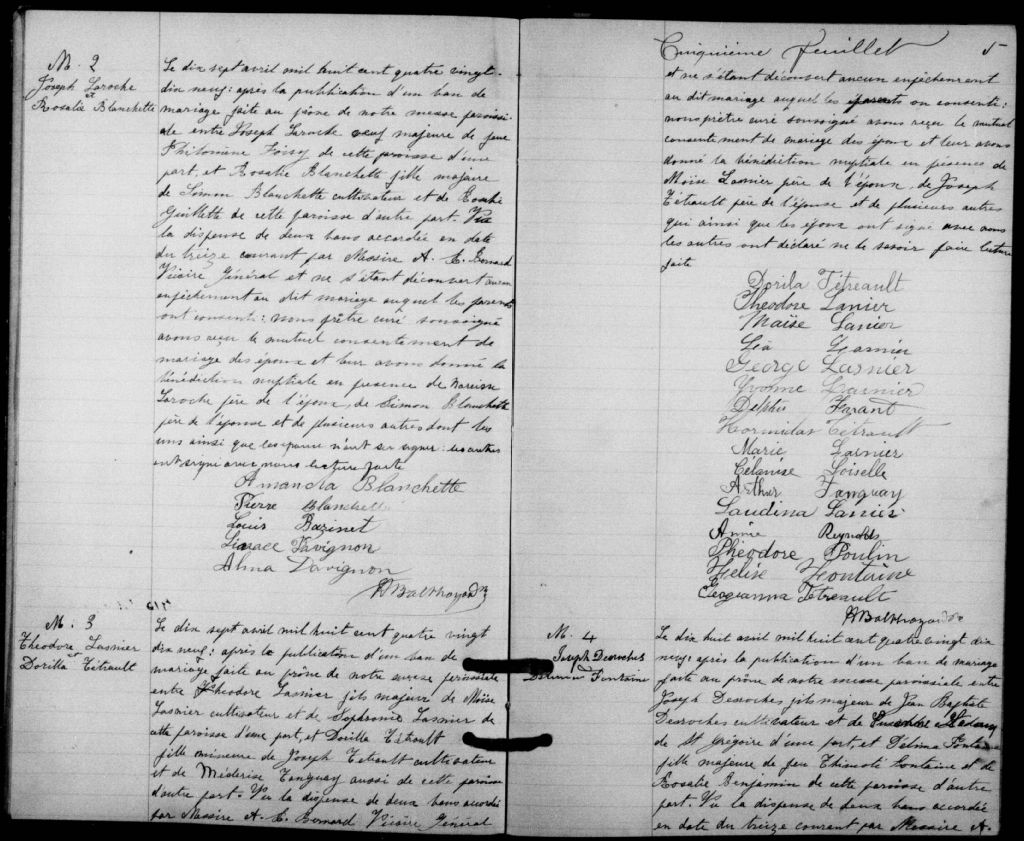 M. 2
Joseph Laroche
et
Rosalie Blanchette
Le dix sept avril mil huit cent quatre vingt-
dix neuf: après la publication d'un ban de
mariage faite au prône de notre messe paroissi-
ale entre Joseph Laroche veuf majeure de feue
Philomène Foisy de cette paroisse d'une
part, et Rosalie Blanchette fille majeure
de Simon Blanchette cultivateur et de
Guillette de cette paroisse d'autre part. Vu
la dispense de deux bans accordée en date
du treize courant par Messire A. E. Bernard
Vicaire Général et ne s'étant découvert aucun
enpêchement au dit mariage auquel les parents
ont consenti: nous prêtre curé soussigné
avons reçu le mutuel consentement de
mariage des époux et leur avons donné la
bénédiction nuptiale en présence de Narcisse
Laroche père de l'époux, de Simon Blanchette
père de l'épouse et de plusieurs autres dont les
uns ainsi que les époux n'ont su signer: les autres
ont signé avec nous lecture faite
Amanda Blanchette
Pierre Blanchette
Louis Bazinet
Davignon
Alma Davignon
M. 3
Théodore Lasnier
et
Dorilla Tétrault
Le dix sept avril mil huit cent quatre vingt
dix neuf: après la publication d'un ban de
mariage faite au prône de notre messe paroissiale
entre Théodore Lasnier fils majeur de Moïse
Lasnier cultivateur et de Sophronie Lasnier de
cette paroisse d'une part, et Dorilla Tétrault
fille mineure de Joseph Tétrault cultivateur
et de Méderise Tanguay aussi de cette paroisse
d'autre part. Vu la dispense de deux bans accordée
par Messire A. E. Bernard Vicaire Général
Cinquième feuillet 5
et ne s'étant découvert aucun enpêchement
au dit mariage auquel les parents on consenti:
nous prêtre curé soussigné avons reçu le mutuel
consentement de mariage des époux et leur avons
donné la bénédiction nuptiale en présence de
Moïse Lasnier père de l'époux, de Joseph
Tétrault père de l'épouse et de plusieurs autres
qui ainsi que les époux ont signé avec nous
les autres ont déclaré ne le savoir faire lecture
faite
Dorila Tétreault
Theodore Lanier
Maïse Lanier
Lasnier
George Lasnier
Yvonne Lasnier
Delphis
Hormidas Tétrault
Marie Lasnier
Célanise Loiselle
Arthur Tanguay
Laudina Lanier
Annie Reynolds
Théodore Poulin
Fontaine
Georgianna Tétreault
M. 4
Joseph Desroches
et
Délima Fontaine
Le dix huit avril mil huit cent quatre vingt dix
neuf: après la publication d'un ban de mariage
faite au prône de notre messe paroissiale entre
Joseph Desroches fils majeur de Jean Baptiste
Desroches cultivateur et de
de St Grégoire d'une part, et Délima Fontaine
fille majeure de feu Thimoté Fontaine et de
Rosalie Benjamin de cette paroisse d'autre
part. Vu la dispense de deux bans accordée
en date du treize courant par Messire A.